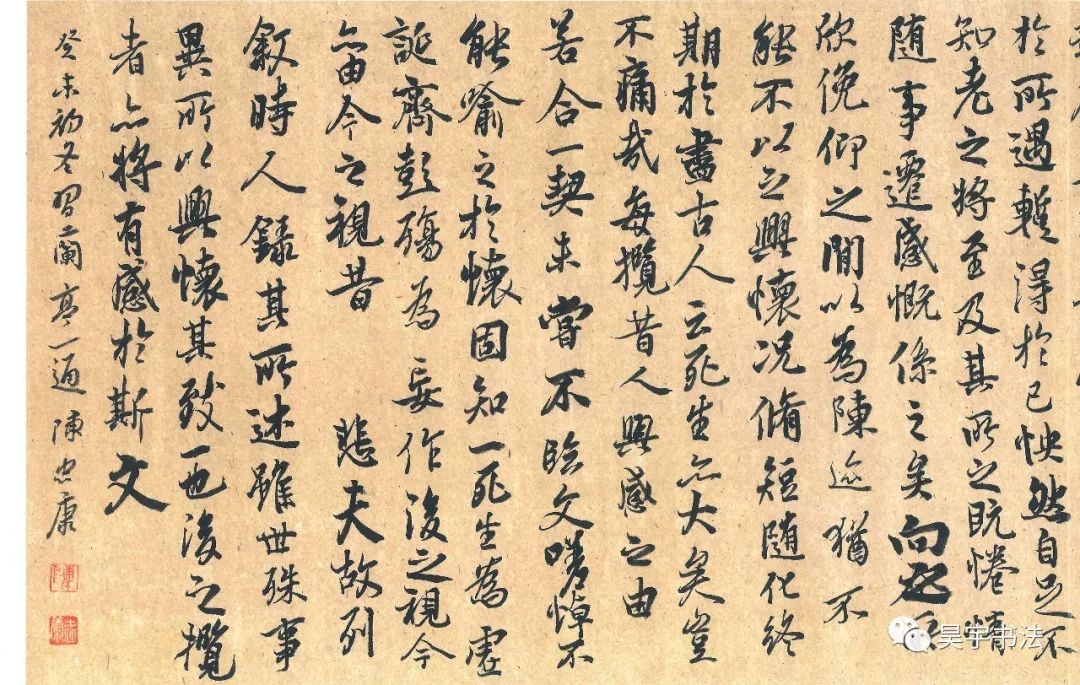 於所遇蹔得於己怏然自足不
知老之將至及其所之既惓情
随事遷感慨係之矣向之所
欣俛仰之閒以為陳迹猶不
能不以之興懷况脩短随化終
期於盡古人云死生亦大矣豈
不痛哉每攬昔人興感之由
若合一契未嘗不臨文嗟悼不
能喻之於懷固知一死生為虚
誕齊彭殤為妄作後之視今
亦由今之視昔 悲夫故列
敘時人録其所述雖世殊事
異所以興懷其致一也後之攬
者亦將有感於斯文
癸未初冬習蘭亭一通 陳忠康
昊宇书法